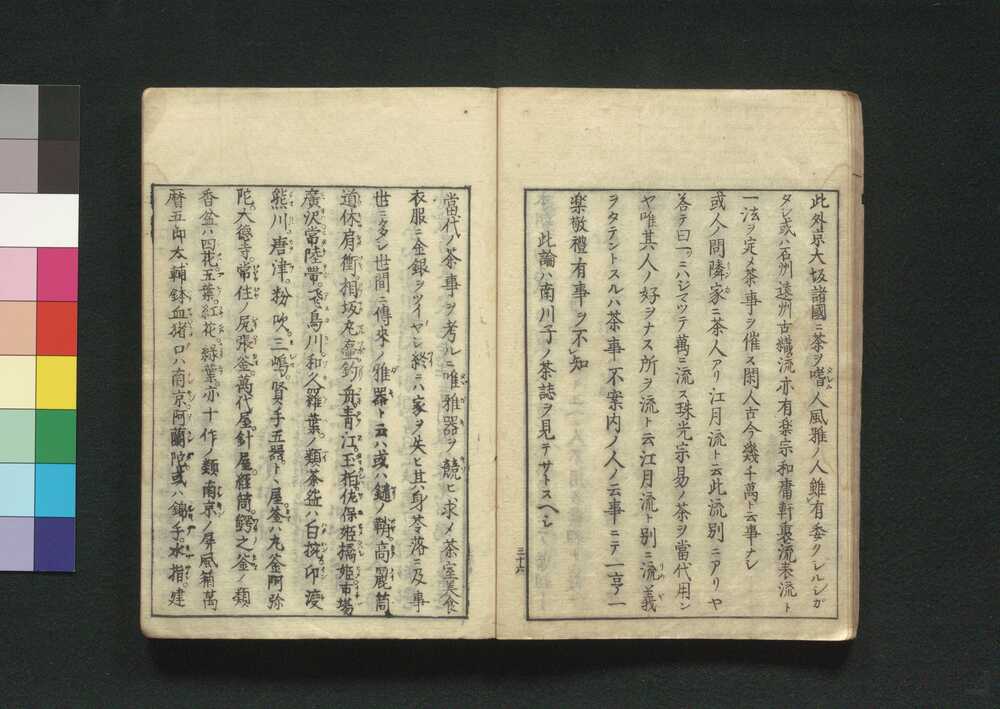 此外京大坂諸國ニ茶ヲ嗜人風雅ノ人雖有委クシルシガ
タシ或ハ石州遠州古織流亦有楽宗和庸軒裏流表流ト
一法ヲ定メ茶事ヲ催ス閑人古今幾千萬ト云事ナシ
或人問隣家ニ茶人アリ江月流ト云此流別ニアリヤ
答テ曰一ツニハジマツテ萬ニ流ス珠光宗易ノ茶ヲ當代用ン
ヤ唯其人ノ好ヲナス所ヲ流ト云江月流ト別ニ流義
ヲタテントスルハ茶事不案内ノ人ノ云事ニテ一言一
楽敬禮有事ヲ不知
此論ハ南川子ノ茶誌ヲ見テサトスヘシ
三十六
當代ノ茶事ヲ考ルニ唯雅器ヲ競ヒ求メ茶室美食
衣服ニ金銀ヲツイヤシ終ニハ家ヲ失ヒ其身零落ニ及事
世ニタシ世間ニ傳來ノ雅器ト云ハ或ハ鏽ノ鞘高麗筒
道休肩衝相坂丸壷釣舟青江玉柏佐保姫橋姫市場
廣沢常陸帶飛鳥川和久羅葉ノ類茶盌ハ白掟印渡
熊川唐津粉吹三嶋堅手五器ト丶屋釜ハ丸釜阿弥
陀大德寺常住ノ尻張釜萬代屋針屋經筒鰐之釜ノ類
香盆ハ四花五葉紅花緑葉亦十作ノ類南京ノ屏風箱萬
暦五郎太輔鉢血猪口ハ南京阿蘭陀或ハ鋤手水指建